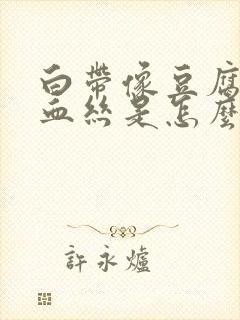 白帶像豆腐
血絲是怎麼
許永爐